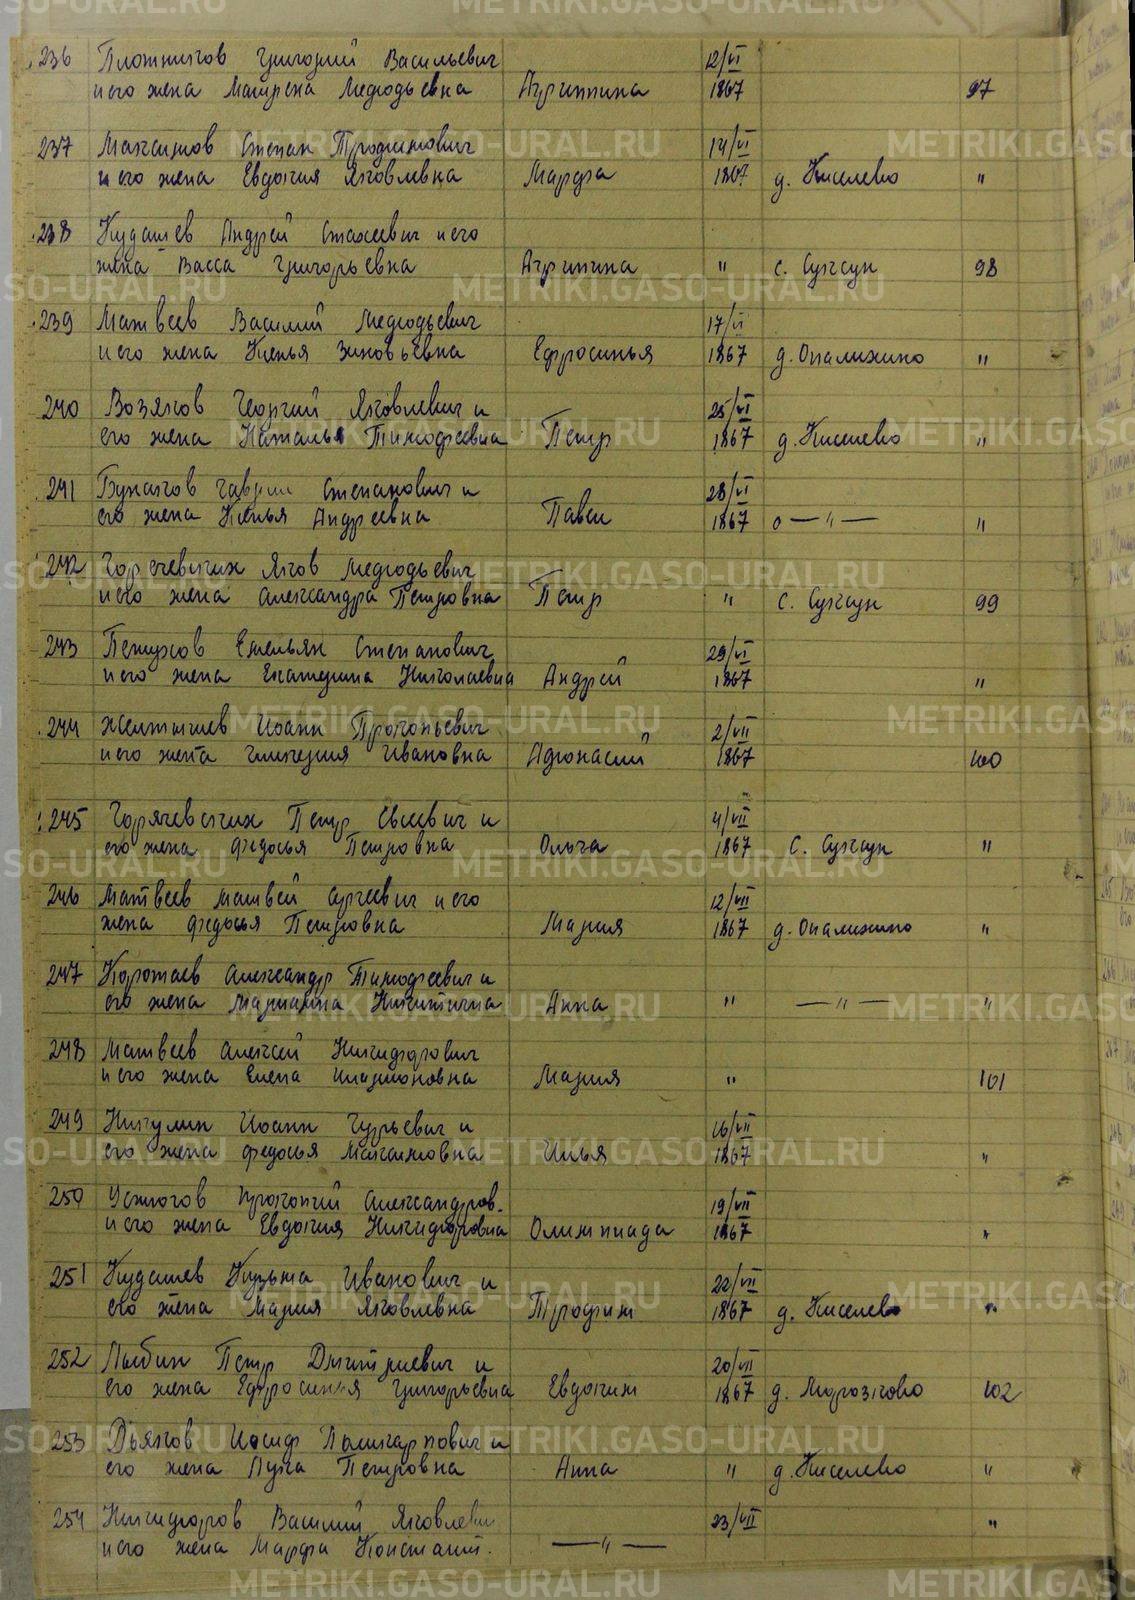 METRIKI.GASO-URAL.RU
236 Плотников Григорий Васильевич 12/VI
и его жена Матрена Мефодьевна Агриппина 1867 97
237 Максимов Степан Трофимович 14/VI
и его жена Евдокия Яковлевна Марфа 1867 д. Киселево "
238 Кудашев Андрей Стахеевич и его
жена Васса Григорьевна Агрипина " с. Суксун 98
239 Матвеев Василий Мефодьевич 17/VI
и его жена Ксенья Зиновьевна Ефросинья 1867 д. Опалихино "
240 Возяков Георгий Яковлевич и 25/VI
его жена Наталья Тимофеевна Петр 1867 д. Киселево "
241 Бунаков Гаврил Степанович и 28/VI
его жена Ксенья Андреевна Павел 1867 — " — "
242 Горечевских Яков Мефодьевич
и его жена Александра Петровна Петр " с. Суксун 99
243 Петухов Емельян Степанович 29/VI
и его жена Екатерина Николаевна Андрей 1867 "
244 Желтышев Иоанн Прокопьевич 2/VII
и его жена Гликерия Ивановна Афонасий 1867 100
245 Горячевских Петр Евсеевич и 4/VII
его жена Федосья Петровна Ольга 1867 с. Суксун "
246 Матвеев Матвей Сергеевич и его 12/VII
жена Федосья Петровна Мария 1867 д. Опалихино "
247 Коротаев Александр Тимофеевич и
его жена Марианна Никитична Анна " — " — "
248 Матвеев Алексей Никифорович
и его жена Елена Иларионовна Мария " 101
249 Никулин Иоанн Гурьевич и 16/VII
его жена Федосья Максимовна Илья 1867 "
250 Устюгов Прокопий Александров. 19/VII
и его жена Евдокия Никифоровна Олимпиада 1867 "
251 Кудашев Кузьма Иванович и 22/VII
его жена Мария Яковлевна Трофим 1867 д. Киселево "
252 Лыбин Петр Дмитриевич и 20/VII
его жена Ефросинья Григорьевна Евдоким 1867 д. Морозково 102
253 Дьяков Иосиф Поликарпович и
его жена Лукия Петровна Анна " д. Киселево "
254 Никифоров Василий Яковлевич 23/VII "
и его жена Марфа Констант. — " —